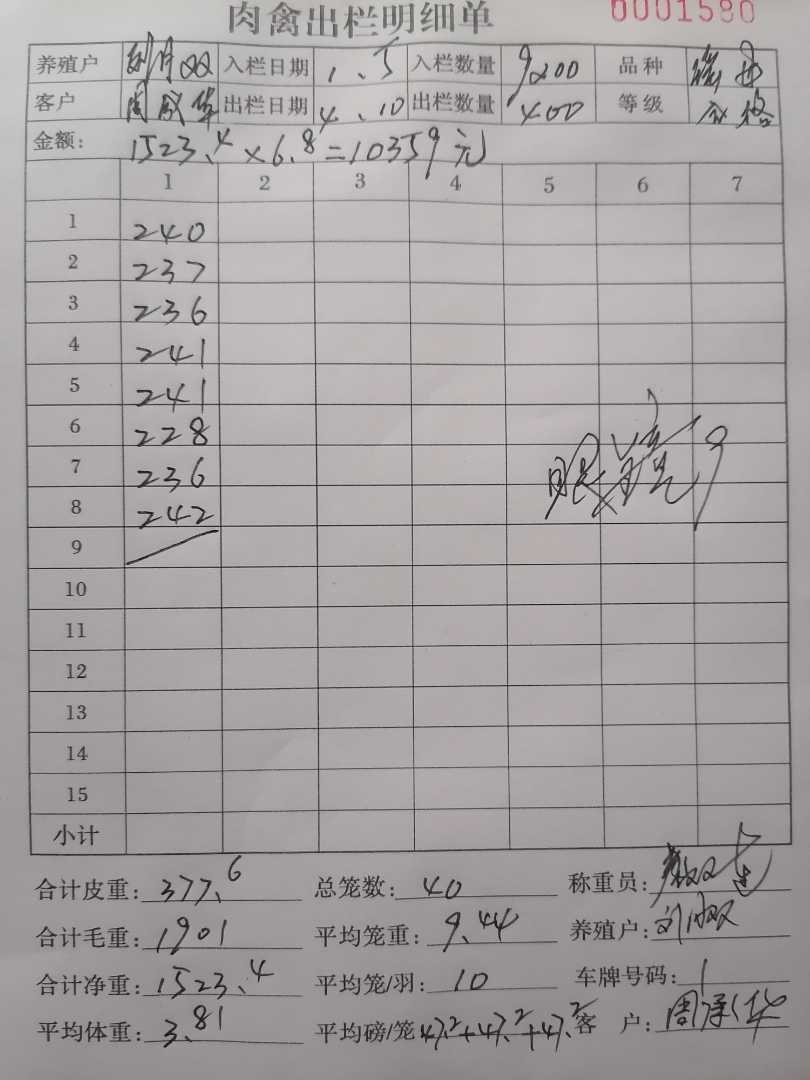 肉禽出栏明细单 0001580
养殖户 刘月双 入栏日期 1、5 入栏数量 9200 品种
客户 周成华 出栏日期 4、10 出栏数量 400 等级 合格
金额: 1523.4×6.8=10359元
1 2 3 4 5 6 7
1 240
2 237
3 236
4 241
5 241
6 228
7 236
8 242
9
10
11
12
13
14
15
小计
合计皮重: 377.6 总笼数: 40 称重员:
合计毛重: 1901 平均笼重: 9.44 养殖户: 刘月双
合计净重: 1523.4 平均笼/羽: 10 车牌号码:
平均体重: 3.81 平均磅/笼 47.2+47.2+47.2 客户: 周成华